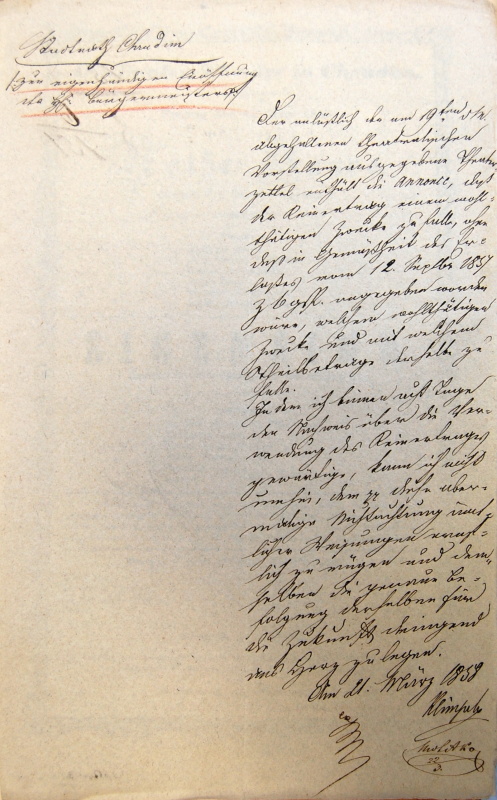 Stadtrath Chrudim
zur eigenhändigen Eröffnung
des Bürgermeisters
Der anläßlich der am 19ten d. M.
abgehaltenen theatralischen
Vorstellung ausgegebene Theater
zettel enthält die Annonce, daß
der Reinertrag einem wohl-
thätigen Zwecke zufalle, ohne
daß in Gemäßheit des Er-
laßes vom 12. Septbr 1857
angegeben worden
wäre, welchem wohlthätigen
Zwecke und mit welchem
Theilbetrage derselbe zu
falle.
Indem ich binnen acht Tagen
den Nachweis über die Ver-
wendung des Reinertrages
gewärtige, kann ich nicht
umhin, dem diese aber-
malige Nichtachtung
licher Weisungen ernst-
lich zu rügen und dem-
selben die genaue Be-
folgung derselben für
die Zukunft dringend
ans Herz zu legen.
Am 21. März 1858